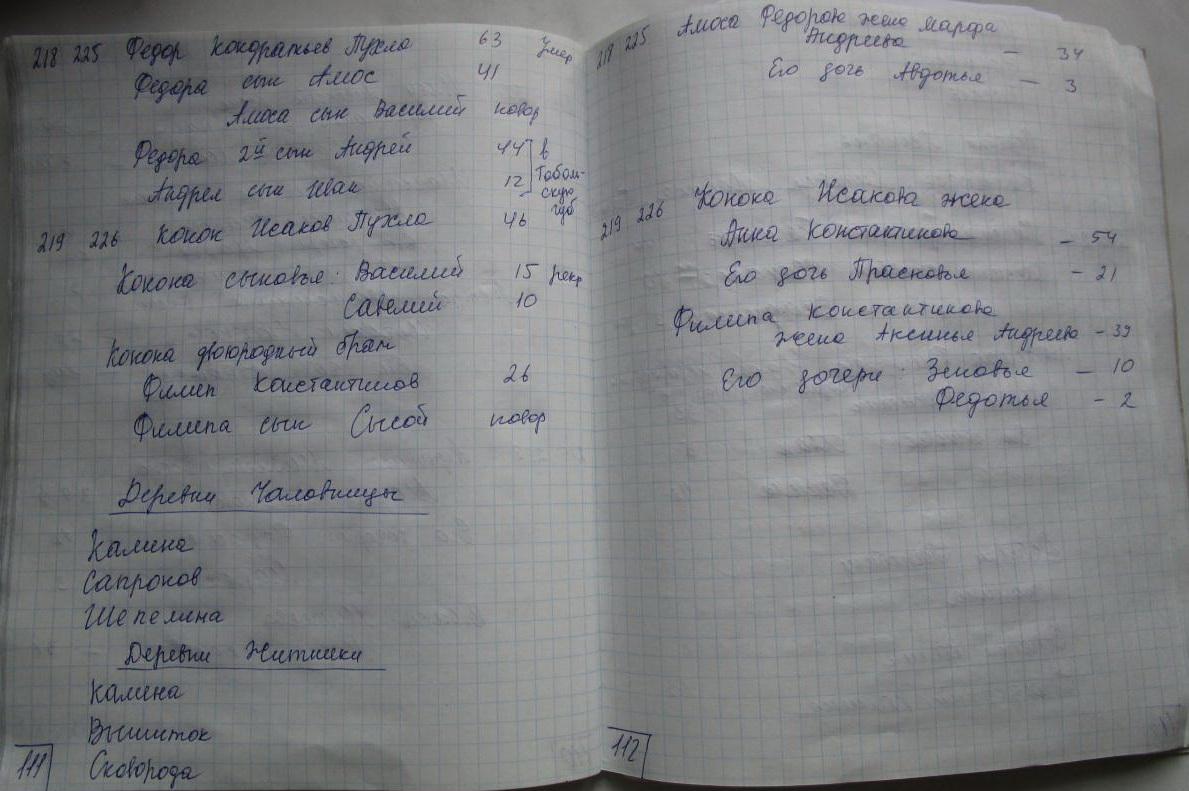 218 225 Федор Кондратьев Пухло 63 Умер
Федора сын Амос 41
Амоса сын Василий новор
Федора 2й сын Андрей 44 в
Андрея сын Иван 12 Тоболь-
скую
губ
219 226 Конон Исаков Пухло 46
Конона сыновья: Василий 15 рекр
Савелий 10
Конона двоюродный брат
Филип Константинов 26
Филипа сын Сысой новор
Деревни Чаловницы
Калина
Сапронов
Шепелина
Деревни Житники
Калина
Вышиток
Сковорода
111
218 225 Амоса Федорова жена Марфа
Андреева — 34
Его дочь Авдотья — 3
219 226 Конона Исакова жена
Анна Константинова — 54
Его дочь Прасковья — 21
Филипа Константинова
жена Аксинья Андреева — 39
Его дочери: Зиновья — 10
Федотья — 2
112